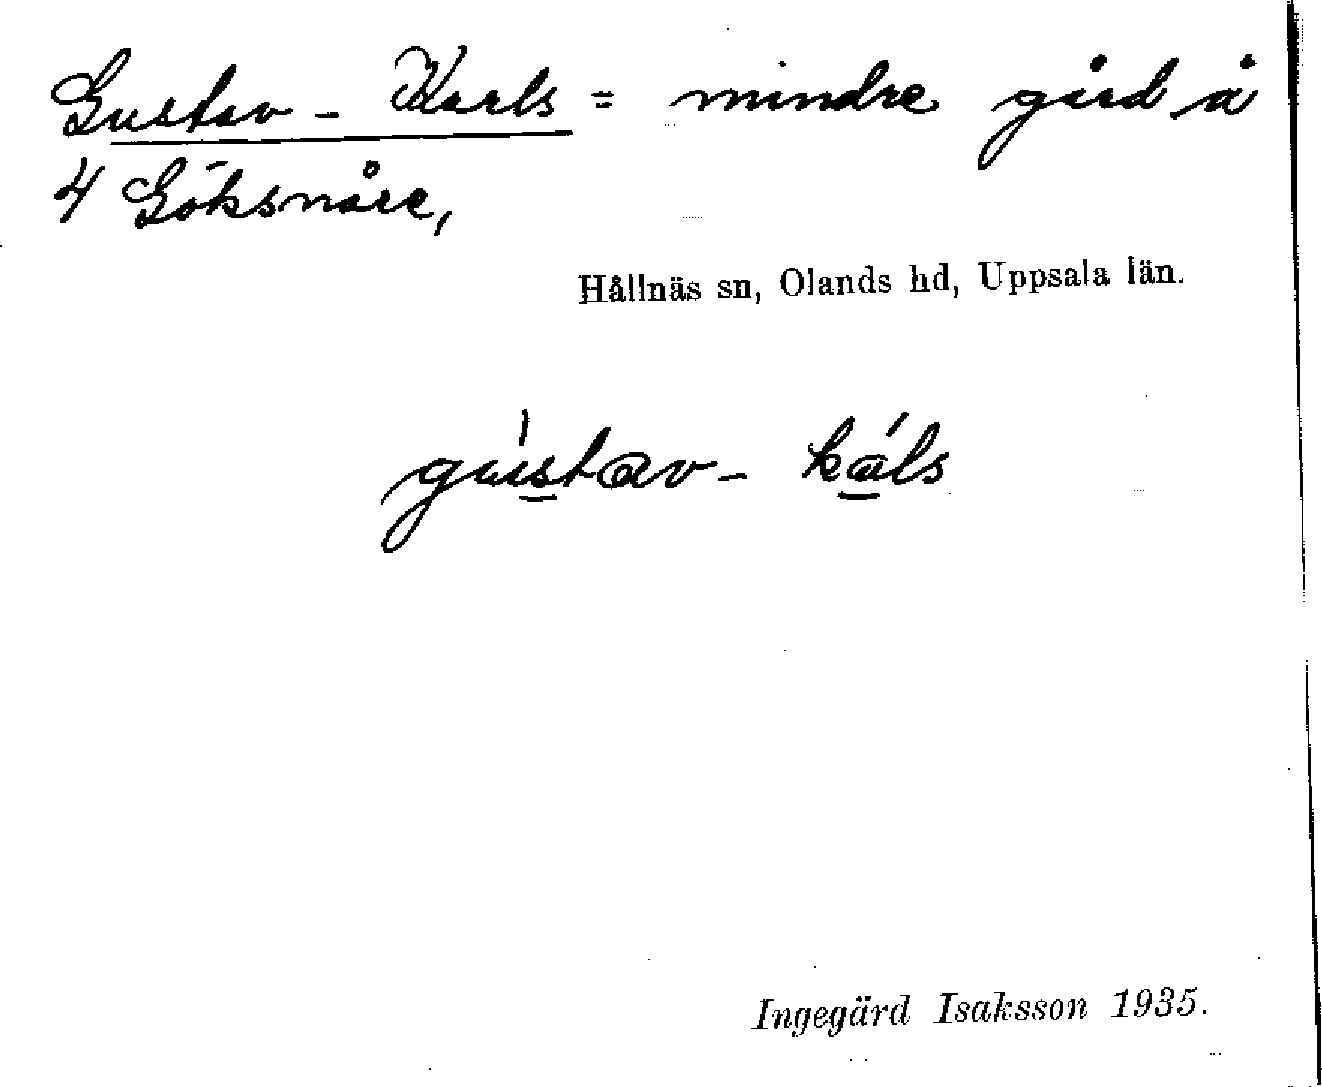 Gustav - Karls = mindre gård å
4 Göksnåre,
Hållnäs sn, Olands hd, Uppsala län.
gústav - káls
Ingegärd Isaksson 1935.